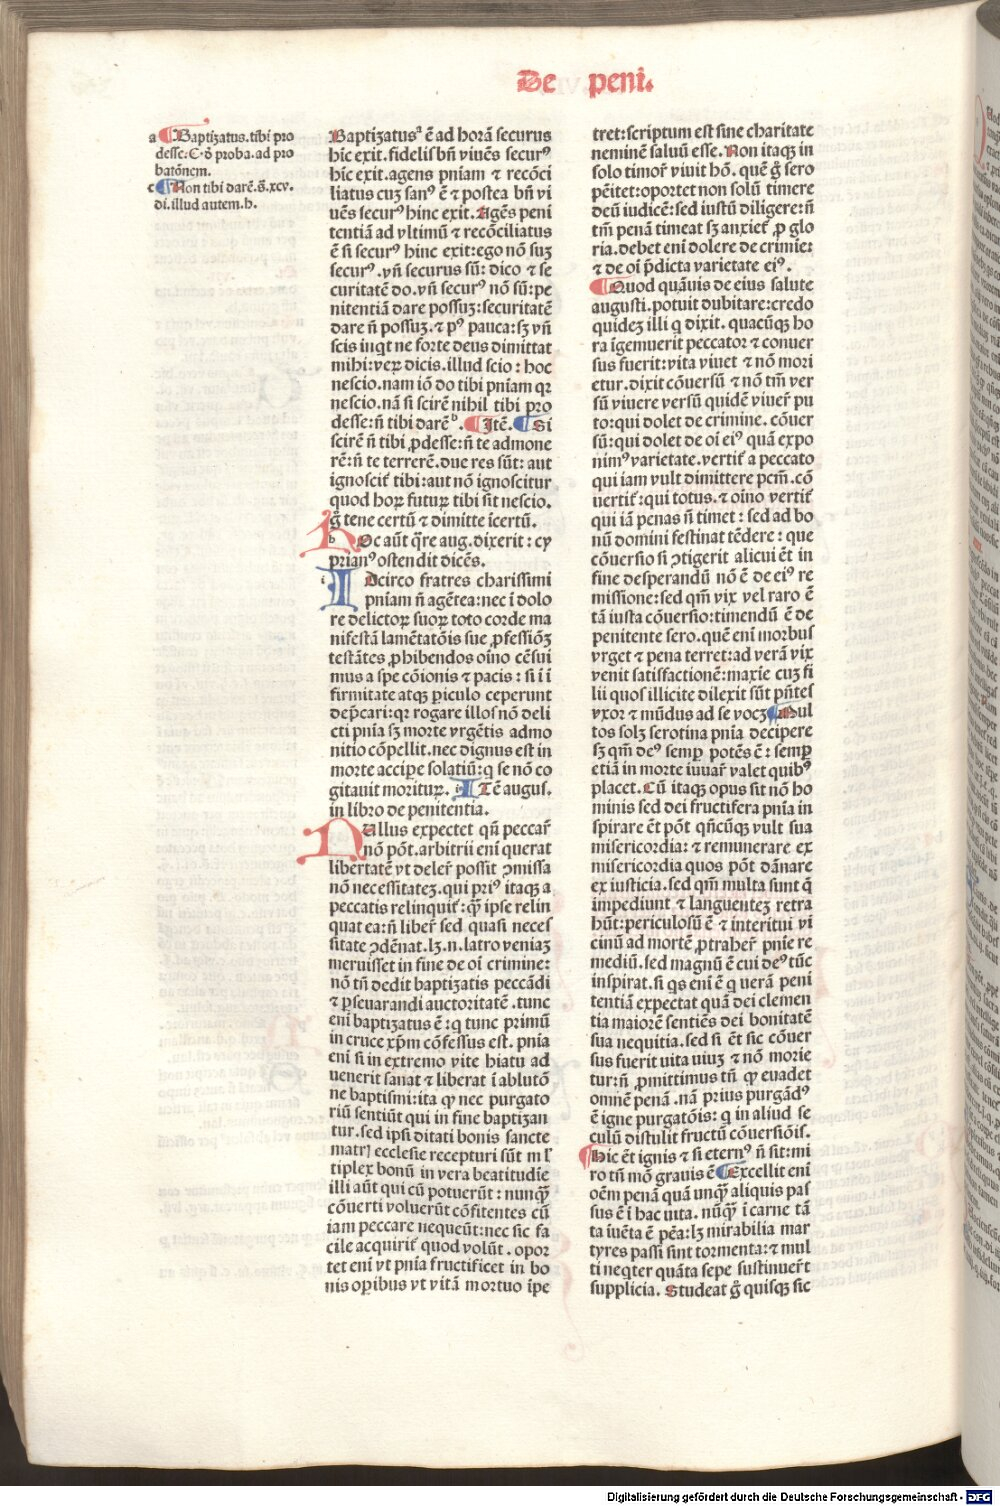 De peni.
a ¶ Baptizatus. tibi pro
desse: C. ꝟ proba. ad pro
batōnem.
c ¶ Non tibi darē. s̄. xcv.
di. illud autem. h.
Baptizatusᵃ ē ad horā securus
hic exit. fidelis bn̄ viuēs securꝰ
hic exit. agens pniam ⁊ recōci
liatus cuz sanꝰ ē ⁊ postea bn̄ vi
uēs securꝰ hinc exit. Agēs peni
tentiā ad vltimū ⁊ recōciliatus
ē si securꝰ hinc exit: ego nō suz
securꝰ. vn̄ securus sū: dico ⁊ se
curitatē do. vn̄ securꝰ nō sū: pe
nitentiā dare possuz: securitatē
dare n̄ possuz. ⁊ pꝰ pauca: sꝫ vn̄
scis inqt ne forte deus dimittat
mihi: veꝝ dicis. illud scio: hoc
nescio. nam iō do tibi pniam qꝛ
nescio. nā si scirē nihil tibi pro
desse: n̄ tibi darēᵇ. ¶ Itē. ¶ Si
scirē n̄ tibi ꝓdesse: n̄ te admone
rē: n̄ te terrerē. due res sūt: aut
ignoscit̄ tibi: aut nō ignoscitur
quod hoꝝ futuꝝ tibi sit nescio.
g̊ tene certū ⁊ dimitte īcertū.
Hoc aūt q̄re aug. dixerit: cy
prianꝰ ostendit dicēs.
Idcirco fratres charissimi
pniam n̄ agētea: nec ī dolo
re delictoꝝ suoꝝ toto corde ma
nifestā lamētatōis sue ꝓfessiōꝫ
testātes ꝓhibendos oīno cēsui
mus a spe cōionis ⁊ pacis: si ī ī
firmitate atqꝫ ꝑiculo ceperunt
dep̄cari: qꝛ rogare illos nō deli
cti pnia sꝫ morte vrgētis admo
nitio cōpellit. nec dignus est in
morte accipe solatiū: q se nō co
gitauit morituꝝ. ITē augus.
in libro de penitentia.
NUllus expectet qn̄ peccar̄
nō pōt. arbitrii enī querat
libertatē vt deler̄ possit ꝯmissa
nō necessitatez. qui priꝰ itaqꝫ a
peccatis relinquit̄: qꝫ ipse relin
quat ea: n̄ liber̄ sed quasi neces
sitate ꝯdēnat. lꝫ. n. latro veniaz
meruisset in fine de oī crimine:
nō tn̄ dedit baptizatis peccādi
⁊ ꝑseuarandi auctoritatē. tunc
enī baptizatus ē: q tunc primū
in cruce xp̄m cōfessus est. pnia
enī si in extremo vite hiatu ad
uenerit sanat ⁊ liberat ī ablutō
ne baptismi: ita ꝙ nec purgato
riū sentiūt qui in fine baptizan
tur. sed ipsi ditati bonis sancte
matrꝭ ecclesie recepturi sūt ml̄
tiplex bonū in vera beatitudie
illi aūt qui cū potuerūt: nunqꝫ
cōuerti voluerūt cōfitentes cū
iam peccare nequeūt: nec sic fa
cile acquirit̄ quod volūt. opor
tet enī vt pnia fructificet in bo
nis oꝑibus vt vitā mortuo īpe
tret: scriptum est sine charitate
neminē saluū esse. Non itaqꝫ in
solo timor̄ viuit hō. quē g̊ sero
pēitet: oportet non solū timere
deū iudicē: sed iustū diligere: n̄
tm̄ penā timeat sꝫ anxiet̄ ꝓ glo
ria. debet enī dolere de crimīe:
⁊ de oī p̄dicta varietate eiꝰ.
¶ Quod quāuis de eius salute
augusti. potuit dubitare: credo
quidez illi q dixit. quacūqꝫ ho
ra īgemuerit peccator ⁊ conuer
sus fuerit: vita viuet ⁊ nō mori
etur. dixit cōuersū ⁊ nō tm̄ ver
sū viuere versū quidē viuer̄ pu
to: qui dolet de crimine. cōuer
sū: qui dolet de oī eiꝰ quā expo
nimꝰ varietate. vertit̄ a peccato
qui iam vult dimittere pcm̄. cō
uertit̄: qui totus. ⁊ oīno vertit̄
qui iā penas n̄ timet: sed ad bo
nū domini festinat tēdere: que
cōuersio si ꝯtigerit alicui ēt in
fine desperandū nō ē de eiꝰ re
missione: sed qm̄ vix vel raro ē
tā iusta cōuersio: timendū ē de
penitente sero. quē enī morbus
vrget ⁊ pena terret: ad verā vix
venit satisfactionē: maxīe cuz fi
lii quos illicite dilexit sūt pn̄tes
vxor ⁊ mūdus ad se vocꝫ ¶ Mul
tos solꝫ serotina pnia decipere
sꝫ qm̄ deꝰ semꝑ potēs ē: semꝑ
etiā in morte iuuar̄ valet quibꝰ
placet. Cū itaqꝫ opus sit nō ho
minis sed dei fructifera pnia in
spirare ēt pōt qn̄cūqꝫ vult sua
misericordia: ⁊ remunerare ex
misericordia quos pōt dānare
ex iusticia. sed qm̄ multa sunt q̄
impediunt ⁊ languentez retra
hūt: periculosū ē ⁊ interitui vi
cinū ad mortē ꝓtraher̄ pnīe re
mediū. sed magnū ē cui deꝰ tūc
inspirat. si qs enī ē q uerā peni
tentiā expectat quā dei clemen
tia maiorē sentiēs dei bonitatē
sua nequitia. sed si ēt sic cōuer
sus fuerit uita uiuꝫ ⁊ nō morie
tur: n̄ ꝓmittimus tn̄ ꝙ euadet
omnē penā. nā prius purgādꝰ
ē igne purgatōis: q in aliud se
culū distulit fructū cōuersiōis.
¶ Hic ēt ignis ⁊ si eternꝰ n̄ sit: mi
ro tn̄ mō grauis ē ¶ Excellit enī
oēm penā quā unqꝫ aliquis pas
sus ē ī hac uita. nūqꝫ ī carne tā
ta īuēta ē pēa: lꝫ mirabilia mar
tyres passi sint tormenta: ⁊ mul
ti neqter quāta sepe sustinuer̄t
supplicia. Studeat g̊ quisqꝫ sic
Digitalisierung gefördert durch die Deutsche Forschungsgemeinschaft - DFG